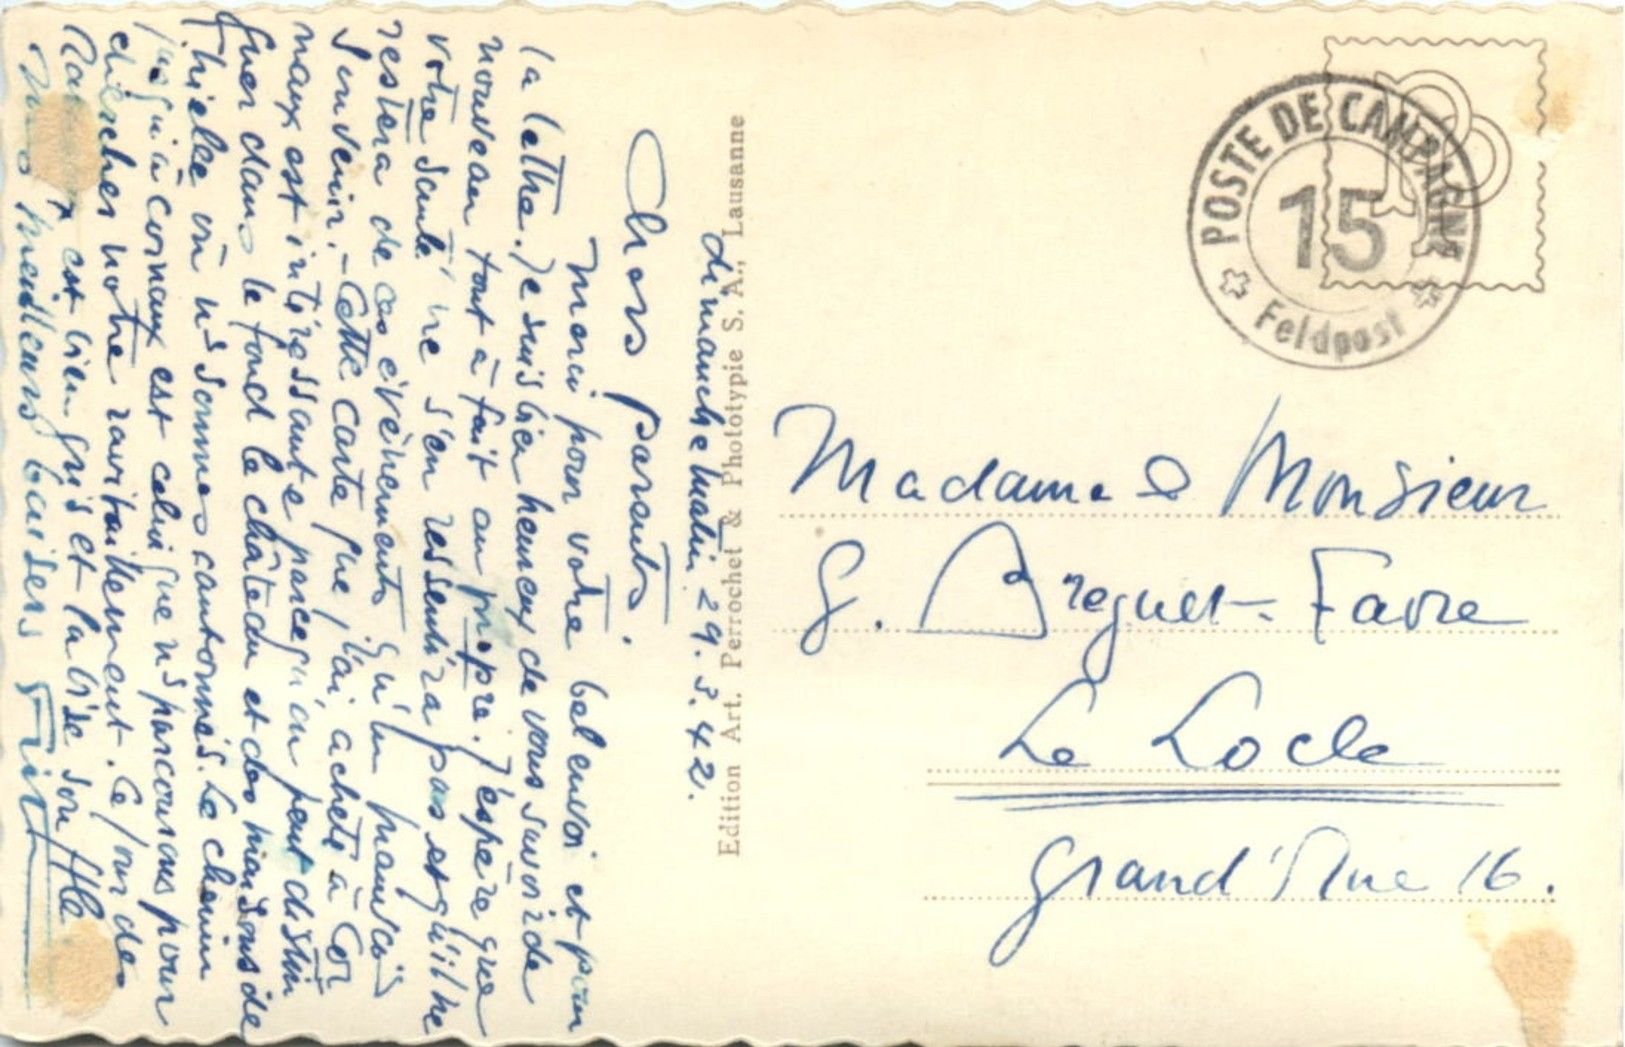 dimanche matin 29.3.42.
Chers parents,
Merci pour votre bel envoi et pour
la lettre. Je suis bien heureux de vous savoir de
nouveau tout à fait au propre. J'espère que
votre santé ne s'en ressentira pas et qu'il ne
restera de ces événements qu'un mauvais
souvenir. - Cette carte que j'ai achetée à Cor
naux est intéressante parce qu'on peut distin
guer dans le fond le château et des maisons de
Thielle où ns sommes cantonnés. Le chemin
jusqu'à Cornaux est celui que ns parcourons pour
chercher notre ravitaillement. Ce jour des
Rameaux est bien gris et la bise souffle.
Mes meilleurs baisers
Edition Art. Perrochet & Phototypie S. A., Lausanne
POSTE DE CAMPAGNE
15
Feldpost
Madame & Monsieur
G. Breguet-Favre
Le Locle
Grand'Rue 16.